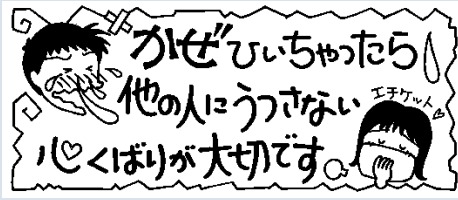 かぜひいちゃったら
他の人にうつさない
エチケット♡
心くばりが大切です。